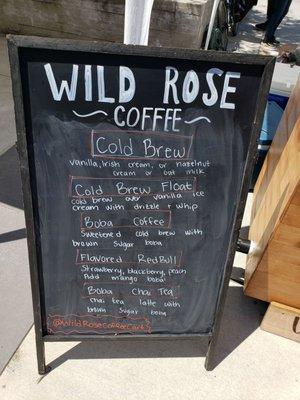 WILD ROSE
COFFEE
Cold Brew
vanilla, Irish cream, or hazelnut
cream or oat milk
Cold Brew Float
cold brew over vanilla ice
cream with drizzle + whip
Boba Coffee
Sweetened cold brew with
brown sugar boba
Flavored RedBull
Strawberry, blackberry, peach
Add mango boba!
Boba Chai Tea
chai tea latte with
brown sugar boba
@WildRoseCoffeeCart